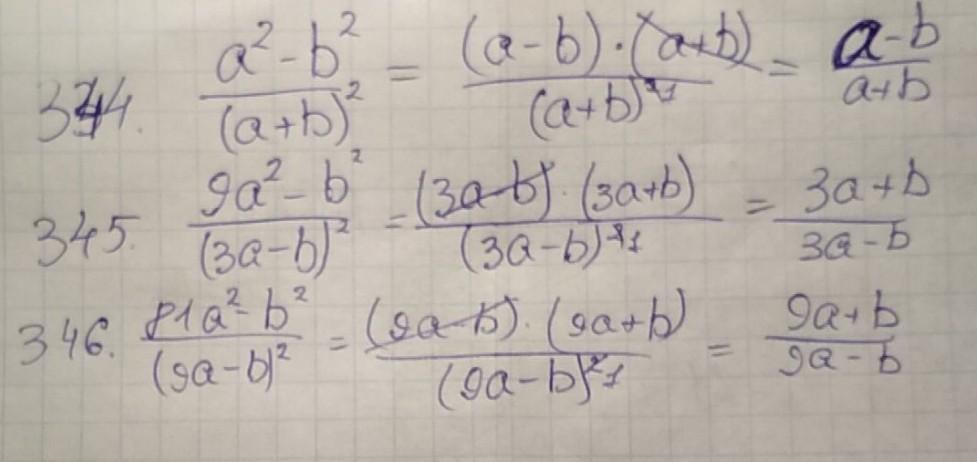 344. \frac{a^2-b^2}{(a+b)^2} = \frac{(a-b)·(a+b)}{(a+b)^{21}} = \frac{a-b}{a+b}
345. \frac{9a^2-b^2}{(3a-b)^2} = \frac{(3a-b)·(3a+b)}{(3a-b)^{21}} = \frac{3a+b}{3a-b}
346. \frac{81a^2-b^2}{(9a-b)^2} = \frac{(9a-b)·(9a+b)}{(9a-b)^{21}} = \frac{9a+b}{9a-b}